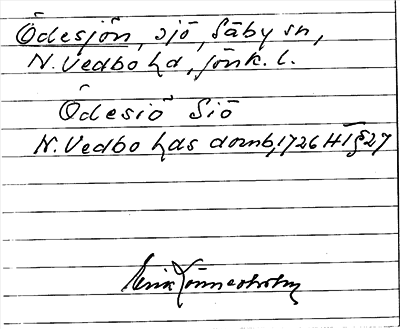 Ödesjön, sjö, Säby sn,
N. Vedbo hd, Jönk. l.
Ödesiö Siö
N. Vedbo hds domb, 1726 HT § 27
Erik Lönnerholm